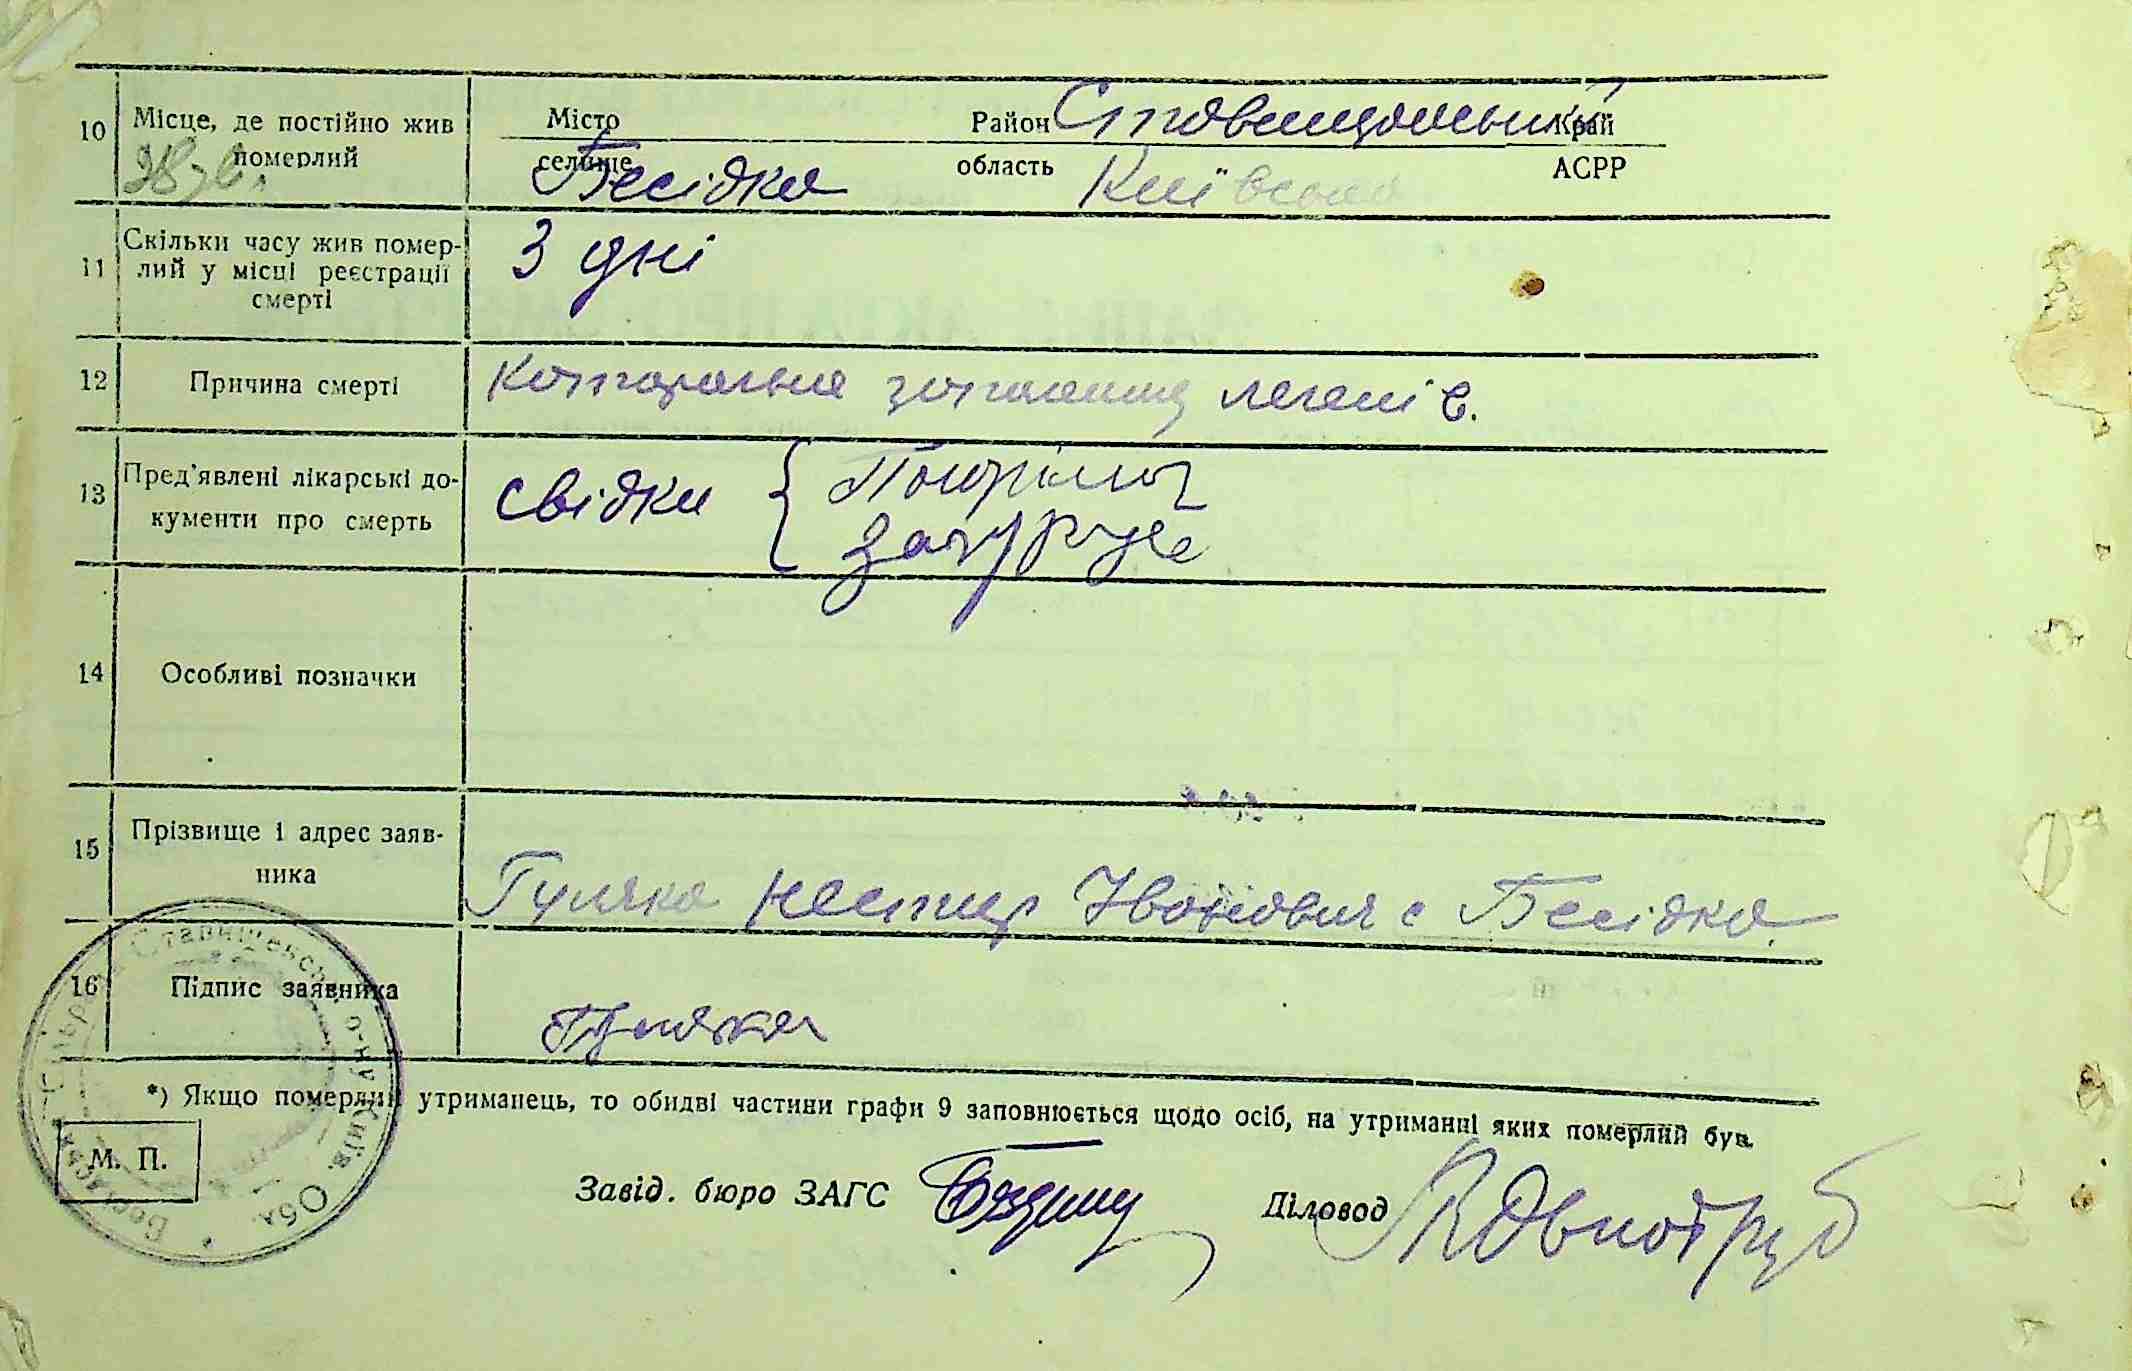 10 Місце, де постійно жив померлий Місто Район Ставищанський Край
селище Бесідка область Київська АСРР
11 Скільки часу жив померлий у місці реєстрації смерті 3 дні
12 Причина смерті Катаральне запалення легенів.
13 Пред'явлені лікарські документи про смерть свідки
14 Особливі позначки
15 Прізвище і адрес заявника Гуляка Нестир Іванович с Бесідка.
16 Підпис заявника Гуляка
*) Якщо померлий утриманець, то обидві частини графи 9 заповнюється щодо осіб, на утриманні яких померлий був.
М. П.
Завід. бюро ЗАГС Діловод